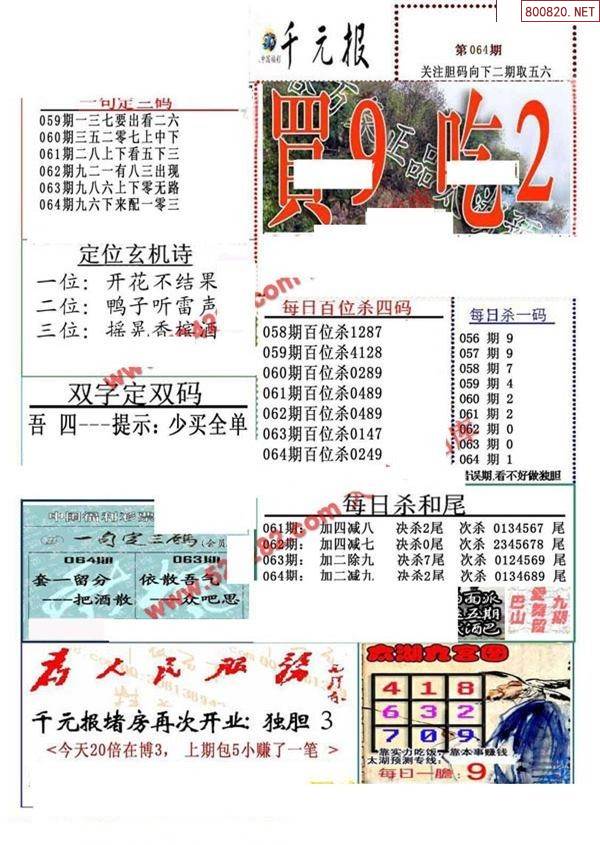 800820.NET
千元报
中国福利
第064期
关注胆码向下二期取五六
一句定三码
059期一三七要出看二六
060期三五二零七上中下
061期二八上下看五下三
062期九二一有八三出现
063期九八六上下零无路
064期九六下来配一零三
買9 吃2
定位玄机诗
一位: 开花不结果
二位: 鸭子听雷声
三位: 摇晃香槟酒
双字定双码
吾 四---提示: 少买全单
每日百位杀四码
058期百位杀1287
059期百位杀4128
060期百位杀0289
061期百位杀0489
062期百位杀0489
063期百位杀0147
064期百位杀0249
每日杀一码
056 期 9
057 期 9
058 期 7
059 期 4
060 期 2
061 期 2
062 期 0
063 期 0
064 期 1
错误期,看不好做独胆
每日杀和尾
061期: 加四减八 决杀2尾 次杀 0134567 尾
062期: 加四减七 决杀0尾 次杀 2345678 尾
063期: 加二除九 决杀7尾 次杀 0124569 尾
064期: 加二减九 决杀2尾 次杀 0134689 尾
中国福利彩票
一句定三码(会员
064期 063期
套—留分 依散吾气
——把酒散 ——众吧思
巴山
九湖
为人民服务
千元报堵房再次开业: 独胆 3
<今天20倍在博3, 上期包5小赚了一笔 >
太湖九宫图
4 1 8
6 3 2
7 0 9
靠实力吃饭,靠本事赚钱
太湖预测专线:
每日一胆: 9